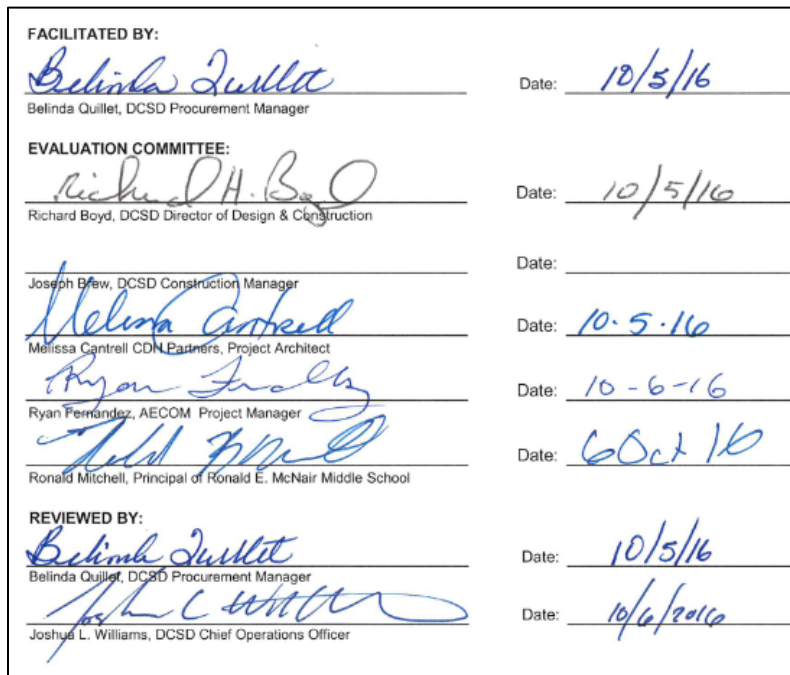 FACILITATED BY:
Belinda Quillet Date: 10/5/16
Belinda Quillet, DCSD Procurement Manager
EVALUATION COMMITTEE:
Richard H. Boyd Date: 10/5/16
Richard Boyd, DCSD Director of Design & Construction
Date:
Joseph Brew, DCSD Construction Manager
Melissa Cantrell Date: 10.5.16
Melissa Cantrell CDH Partners, Project Architect
Ryan Date: 10-6-16
Ryan Fernandez, AECOM Project Manager
Date: 6 Oct 16
Ronald Mitchell, Principal of Ronald E. McNair Middle School
REVIEWED BY:
Belinda Quillet Date: 10/5/16
Belinda Quillet, DCSD Procurement Manager
Date: 10/6/2016
Joshua L. Williams, DCSD Chief Operations Officer